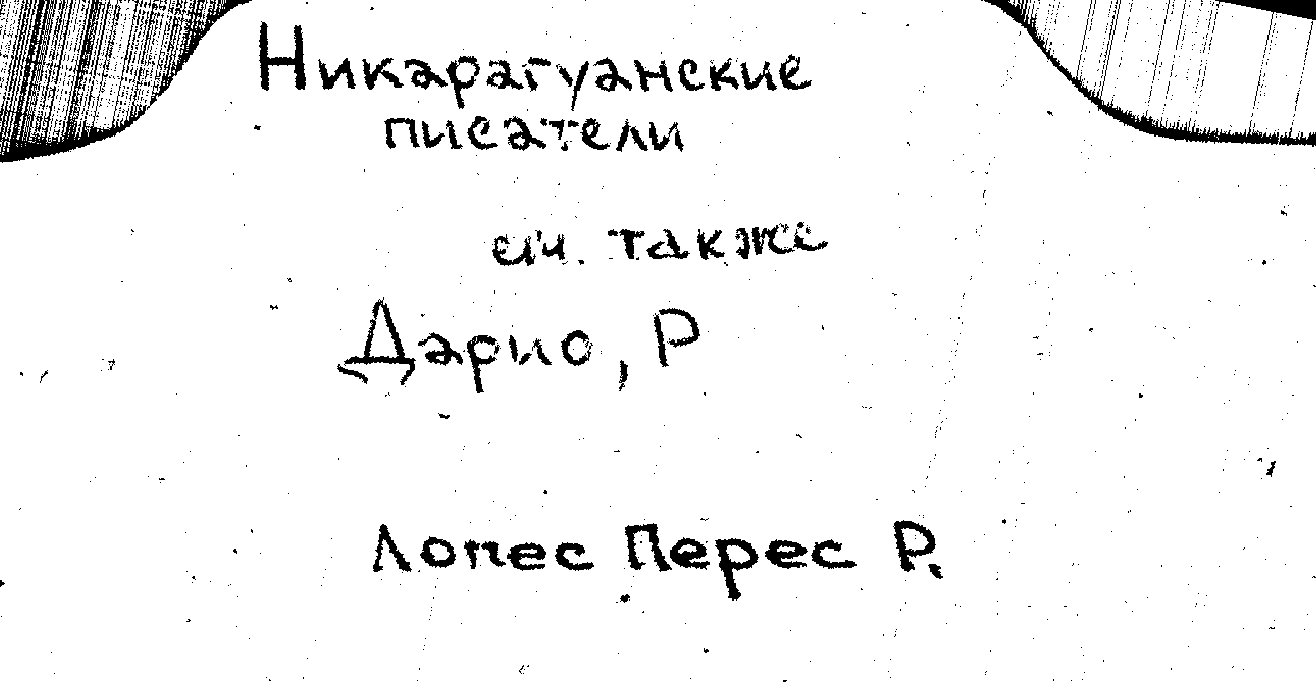 Никарагуанские
писатели
см. также
Дарио, Р
Лопес Перес Р.